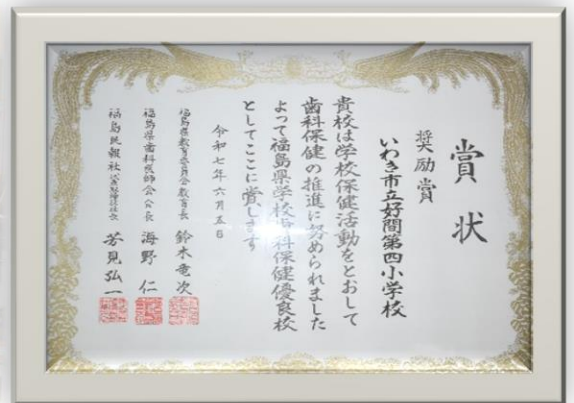 賞状
奨励賞
いわき市立好間第四小学校
貴校は学校保健活動をとおして
歯科保健の推進に努められました
よって福島県学校歯科保健優良校
としてここに賞します
令和七年六月五日
福島県教育委員会教育長 鈴木竜次
福島県歯科医師会会長 海野仁
福島民報社代表取締役社長 芳見弘一